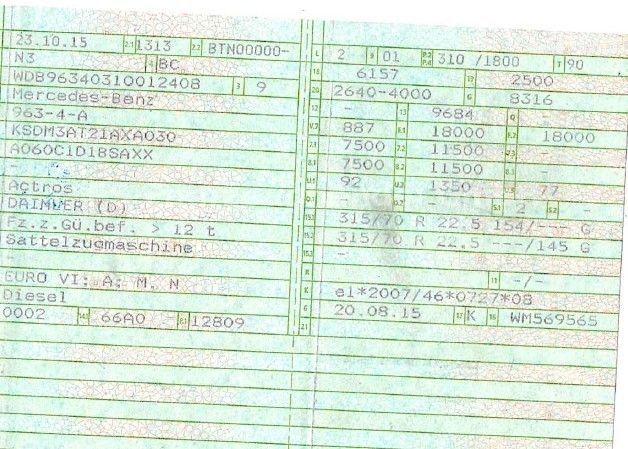 23.10.15 2.1 1313 2.2 BTN00000-
N3 4 BC
WDB96340310012408 3 9
Mercedes-Benz
963-4-A
KSDM3AT21AXA030
A060C1D18SAXX
-
Actros
DAIMLER (D)
Fz.z.Gü.bef. > 12 t
Sattelzugmaschine
EURO VI; A; M, N
Diesel
0002 14.1 66A0 P.1 12809
L 2 9 01 P.2 P.4 310 /1800 T 90
18 6157 19 2500
20 2640-4000 G 8316
12 - 13 9684 Q -
V.7 887 F.1 18000 F.2 18000
7.1 7500 7.2 11500 7.3 -
8.1 7500 8.2 11500 8.3 -
U.1 92 U.2 1350 U.3 77
O.1 - O.2 - S.1 2 S.2 -
15.1 315/70 R 22.5 154/--- G
15.2 315/70 R 22.5 ---/145 G
15.3 -
R 11 -/-
K e1*2007/46*0727*08
6 20.08.15 17 K 16 WM569565
21